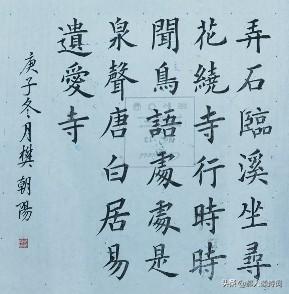 弄石臨溪坐尋
花繞寺行時時
聞鳥語處處是
泉聲唐白居易
遺愛寺
庚子冬月樊朝陽